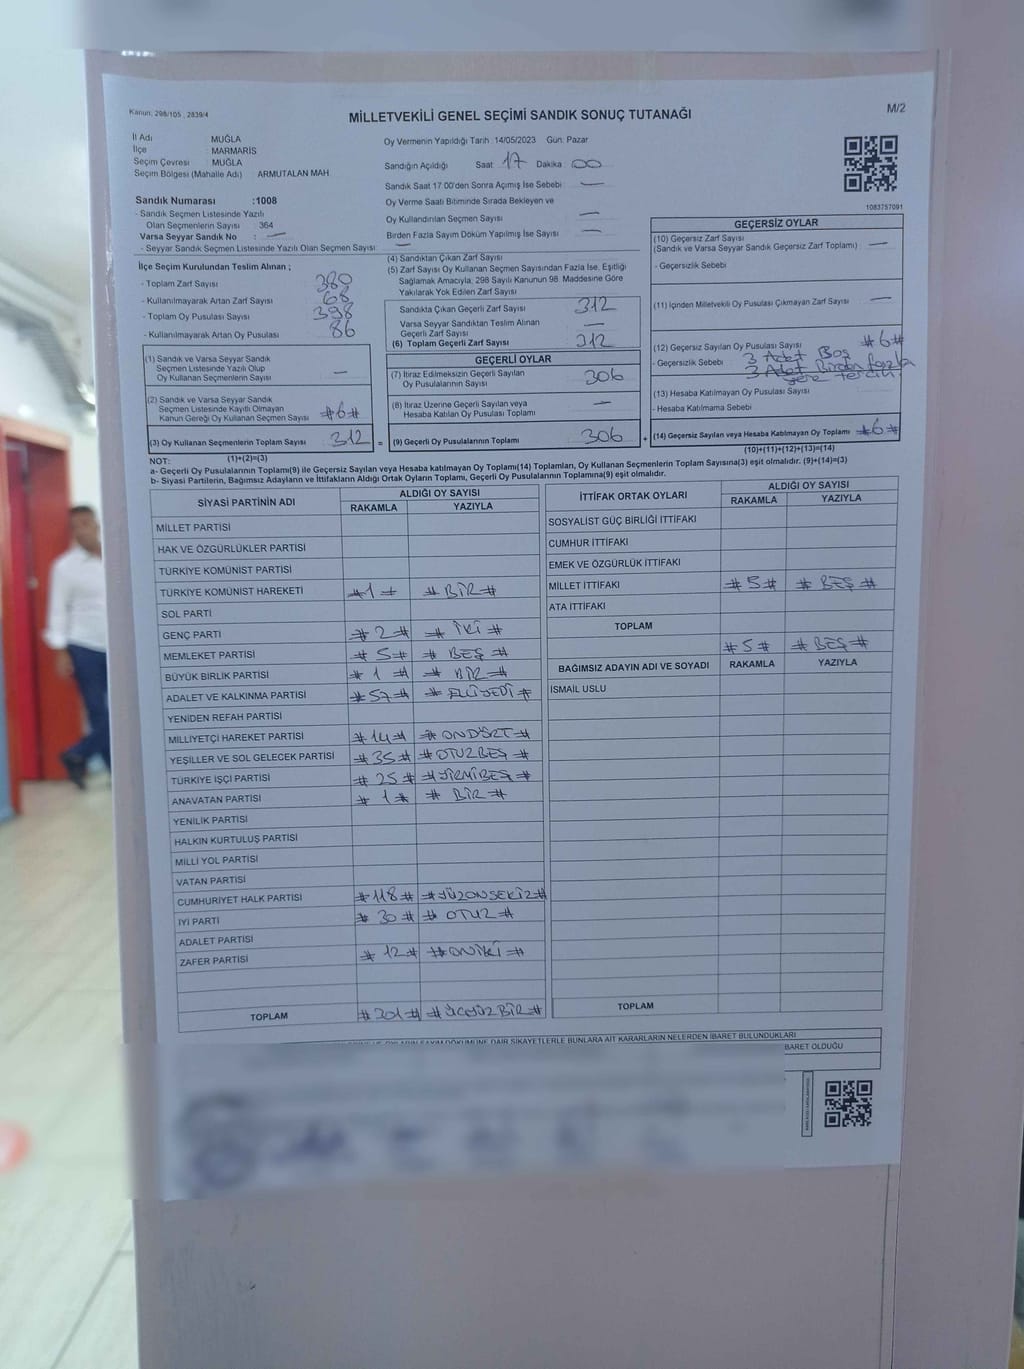 Kanun: 298/105 , 2839/4
MİLLETVEKİLİ GENEL SEÇİMİ SANDIK SONUÇ TUTANAĞI
M/2
İl Adı : MUĞLA
İlçe : MARMARİS
Seçim Çevresi : MUĞLA
Seçim Bölgesi (Mahalle Adı) : ARMUTALAN MAH.
Oy Vermenin Yapıldığı Tarih 14/05/2023 Gün: Pazar
Sandığın Açıldığı Saat 17 Dakika 00
Sandık Saat 17.00'den Sonra Açımış İse Sebebi —
Oy Verme Saati Bitiminde Sırada Bekleyen ve
Oy Kullandırılan Seçmen Sayısı —
Birden Fazla Sayım Döküm Yapılmış İse Sayısı —
1083757091
Sandık Numarası :1008
- Sandık Seçmen Listesinde Yazılı
Olan Seçmenlerin Sayısı : 364
Varsa Seyyar Sandık No : —
- Seyyar Sandık Seçmen Listesinde Yazılı Olan Seçmen Sayısı: —
İlçe Seçim Kurulundan Teslim Alınan ;
- Toplam Zarf Sayısı 380
- Kullanılmayarak Artan Zarf Sayısı 68
- Toplam Oy Pusulası Sayısı 398
- Kullanılmayarak Artan Oy Pusulası 86
(1) Sandık ve Varsa Seyyar Sandık
Seçmen Listesinde Yazılı Olup
Oy Kullanan Seçmenlerin Sayısı —
(2) Sandık ve Varsa Seyyar Sandık
Seçmen Listesinde Kayıtlı Olmayan
Kanun Gereği Oy Kullanan Seçmen Sayısı #6#
(3) Oy Kullanan Seçmenlerin Toplam Sayısı 312 =
(1)+(2)=(3)
(4) Sandıktan Çıkan Zarf Sayısı
(5) Zarf Sayısı Oy Kullanan Seçmen Sayısından Fazla İse, Eşitliği
Sağlamak Amacıyla, 298 Sayılı Kanunun 98. Maddesine Göre
Yakılarak Yok Edilen Zarf Sayısı
Sandıkta Çıkan Geçerli Zarf Sayısı 312
Varsa Seyyar Sandıktan Teslim Alınan
Geçerli Zarf Sayısı —
(6) Toplam Geçerli Zarf Sayısı 312
GEÇERLİ OYLAR
(7) İtiraz Edilmeksizin Geçerli Sayılan
Oy Pusulalarının Sayısı 306
(8) İtiraz Üzerine Geçerli Sayılan veya
Hesaba Katılan Oy Pusulası Toplamı —
(9) Geçerli Oy Pusulalarının Toplamı 306 +
GEÇERSİZ OYLAR
(10) Geçersiz Zarf Sayısı
(Sandık ve Varsa Seyyar Sandık Geçersiz Zarf Toplamı) —
- Geçersizlik Sebebi
(11) İçinden Milletvekili Oy Pusulası Çıkmayan Zarf Sayısı —
(12) Geçersiz Sayılan Oy Pusulası Sayısı #6#
- Geçersizlik Sebebi 3 Adet Boş
3 Adet Birden fazla
yere tercih.
(13) Hesaba Katılmayan Oy Pusulası Sayısı
- Hesaba Katılmama Sebebi
(14) Geçersiz Sayılan veya Hesaba Katılmayan Oy Toplamı #6#
(10)+(11)+(12)+(13)=(14)
NOT:
a- Geçerli Oy Pusulalarının Toplamı(9) ile Geçersiz Sayılan veya Hesaba katılmayan Oy Toplamı(14) Toplamları, Oy Kullanan Seçmenlerin Toplam Sayısına(3) eşit olmalıdır. (9)+(14)=(3)
b- Siyasi Partilerin, Bağımsız Adayların ve İttifakların Aldığı Ortak Oyların Toplamı, Geçerli Oy Pusulalarının Toplamına(9) eşit olmalıdır.
SİYASİ PARTİNİN ADI
ALDIĞI OY SAYISI
RAKAMLA YAZIYLA
MİLLET PARTİSİ
HAK VE ÖZGÜRLÜKLER PARTİSİ
TÜRKİYE KOMÜNİST PARTİSİ
TÜRKİYE KOMÜNİST HAREKETİ #1# #BİR#
SOL PARTİ
GENÇ PARTİ #2# #İKİ#
MEMLEKET PARTİSİ #5# #BEŞ#
BÜYÜK BİRLİK PARTİSİ #1# #BİR#
ADALET VE KALKINMA PARTİSİ #57# #ELLİYEDİ#
YENİDEN REFAH PARTİSİ
MİLLİYETÇİ HAREKET PARTİSİ #14# #ONDÖRT#
YEŞİLLER VE SOL GELECEK PARTİSİ #35# #OTUZBEŞ#
TÜRKİYE İŞÇİ PARTİSİ #25# #YİRMİBEŞ#
ANAVATAN PARTİSİ #1# #BİR#
YENİLİK PARTİSİ
HALKIN KURTULUŞ PARTİSİ
MİLLİ YOL PARTİSİ
VATAN PARTİSİ
CUMHURİYET HALK PARTİSİ #118# #YÜZONSEKİZ#
İYİ PARTİ #30# #OTUZ#
ADALET PARTİSİ
ZAFER PARTİSİ #12# #ONİKİ#
TOPLAM #301# #ÜÇYÜZBİR#
İTTİFAK ORTAK OYLARI
ALDIĞI OY SAYISI
RAKAMLA YAZIYLA
SOSYALİST GÜÇ BİRLİĞİ İTTİFAKI
CUMHUR İTTİFAKI
EMEK VE ÖZGÜRLÜK İTTİFAKI
MİLLET İTTİFAKI #5# #BEŞ#
ATA İTTİFAKI
TOPLAM #5# #BEŞ#
BAĞIMSIZ ADAYIN ADI VE SOYADI RAKAMLA YAZIYLA
İSMAİL USLU
TOPLAM
DAİR ŞİKAYETLERLE BUNLARA AİT KARARLARIN NELERDEN İBARET BULUNDUKLARI
BARET OLDUĞU